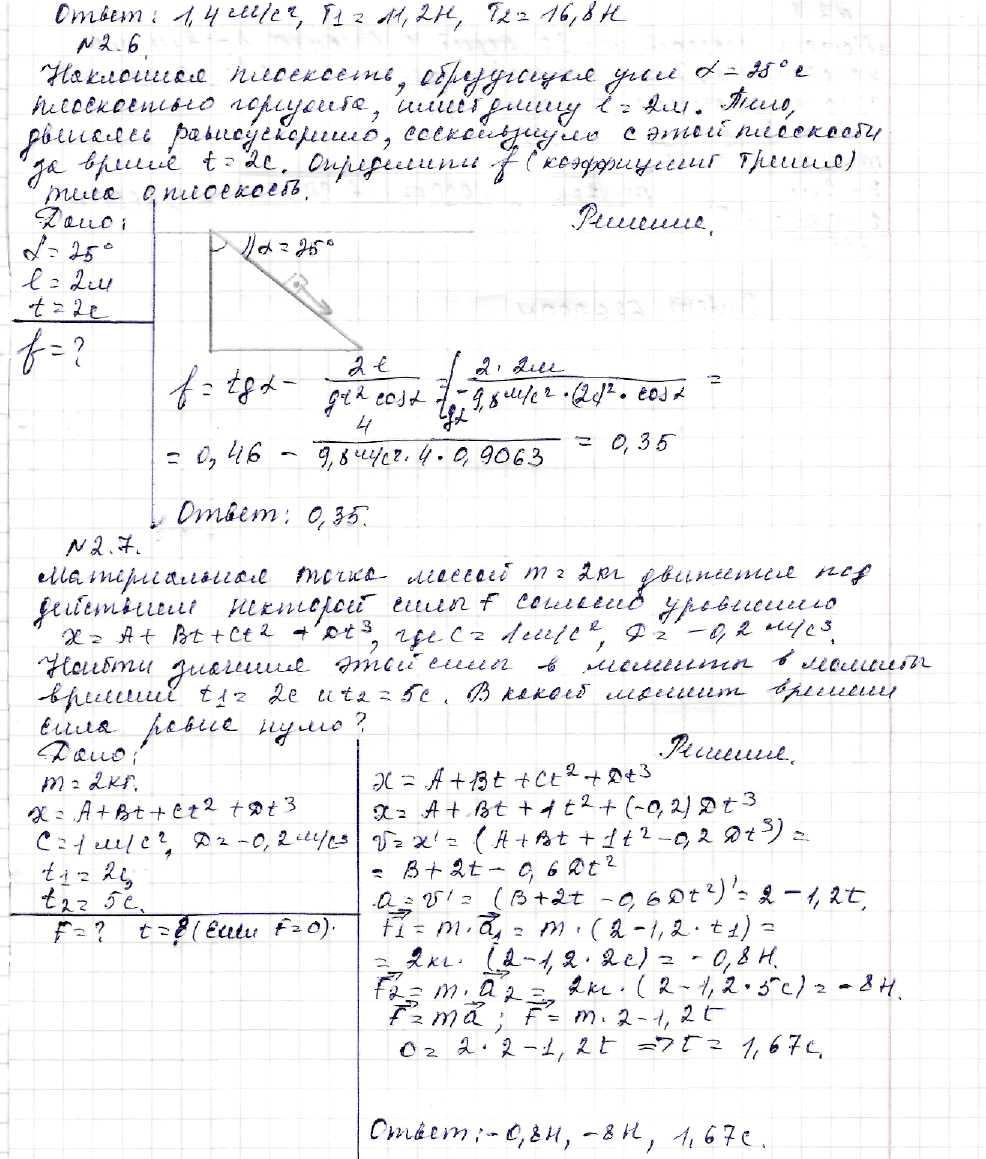 Ответ: 1,4 м/с², T1 = 11,2Н, T2 = 16,8Н
№2.6.
Наклонная плоскость, образующая угол α = 25° с
плоскостью горизонта, имеет длину l = 2м. Тело,
двигаясь равноускоренно, соскользнуло с этой плоскости
за время t = 2с. Определить f (коэффициент трения)
тела о плоскость.
Дано:
α = 25°
l = 2м
t = 2с
f = ?
Решение.
α = 25°
f = tgα - 2l / gt² cosα = tgα - 2·2м / 9,8 м/с²·(2с)²·cosα =
= 0,46 - 4 / 9,8 м/с²·4·0,9063 = 0,35
Ответ: 0,35.
№2.7.
Материальная точка массой m = 2кг движется под
действием некторой силы F согласно уравнению
x = A + Bt + Ct² + Dt³, где C = 1 м/с², D = -0,2 м/с³.
Найти значения этой силы в моменты в моменты
времени t1 = 2с и t2 = 5с. В какой момент времени
сила равна нулю?
Дано:
m = 2кг.
x = A + Bt + Ct² + Dt³
C = 1 м/с², D = -0,2 м/с³
t1 = 2с,
t2 = 5с.
F = ? t = ? (если F = 0).
Решение.
x = A + Bt + Ct² + Dt³
x = A + Bt + 1t² + (-0,2) Dt³
v = x' = (A + Bt + 1t² - 0,2 Dt³) =
= B + 2t - 0,6 Dt²
a = v' = (B + 2t - 0,6 Dt²)' = 2 - 1,2t,
F1 = m·a1 = m·(2 - 1,2·t1) =
= 2кг·(2 - 1,2·2с) = -0,8Н.
F2 = m·a2 = 2кг·(2 - 1,2·5с) = -8Н.
F = ma; F = m·2 - 1,2t
0 = 2·2 - 1,2t => t = 1,67с.
Ответ: -0,8Н, -8Н, 1,67с.